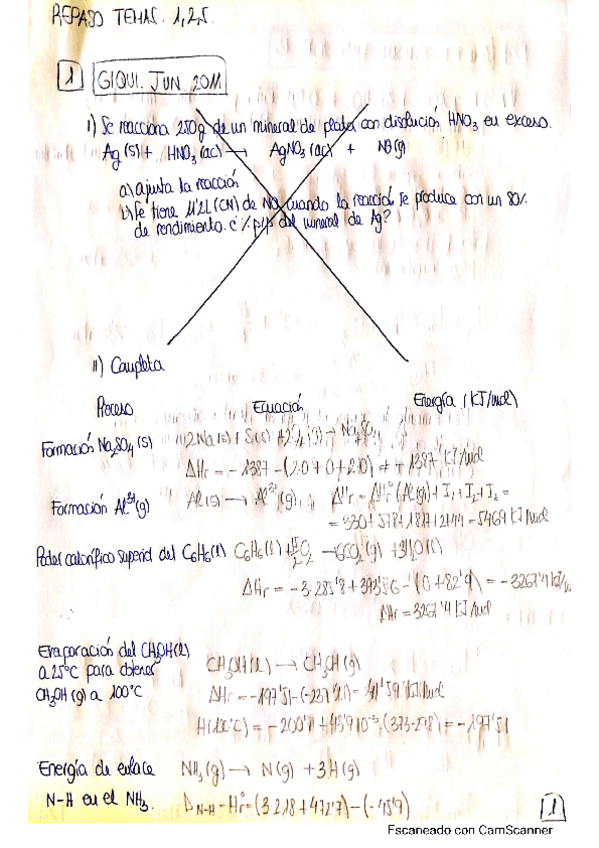 REPASO TEMAS. 1,2,5.
1 GIQUI. JUN. 2011
I) Se reacciona 250g de un mineral de plata con disolución HNO3 en exceso.
Ag (s) + HNO3 (ac) → AgNO3 (ac) + NO(g)
a) ajusta la reacción
b) Se tiene 11'2L (CN) de NO cuando la reacción se produce con un 80%
de rendimiento. ¿% p/p del mineral de Ag?
II) Completa
Proceso Ecuación Energía (KJ/mol)
Formación Na2SO4 (s) 2Na(s) + S(s) + 2O2(g) → Na2SO4
ΔHr = -1387 - (2·0+0+2·0) = 1387 KJ/mol
Formación Al3+(g) Al(s) → Al3+(g) ΔHr = ΔHf°(Al(g)) + I1 + I2 + I3 =
= 330+578+1817+2744 = 5469 KJ/mol
Poder calorífico superior del C6H6(l) C6H6(l) + O2 → 6CO2(g) + 3H2O(l)
ΔHr = -3·285'8 + 393'5·6 - (0+82'9) = -3267'4 KJ/
ΔHr = 3267'4 KJ/mol
Evaporación del CH3OH(l)
a 25ºC para obtener CH3OH(l) → CH3OH(g)
CH3OH (g) a 100ºC ΔHr = -197'51 - =  KJ/mol
H(100ºC) = -200'1 + 43'9·10-3·(373-298) = -197'51
Energía de enlace NH3(g) → N(g) + 3H(g)
N-H en el NH3. ΔN-H = Hr° = (3·218+472'7) - (-45'9)
1
Escaneado con CamScanner